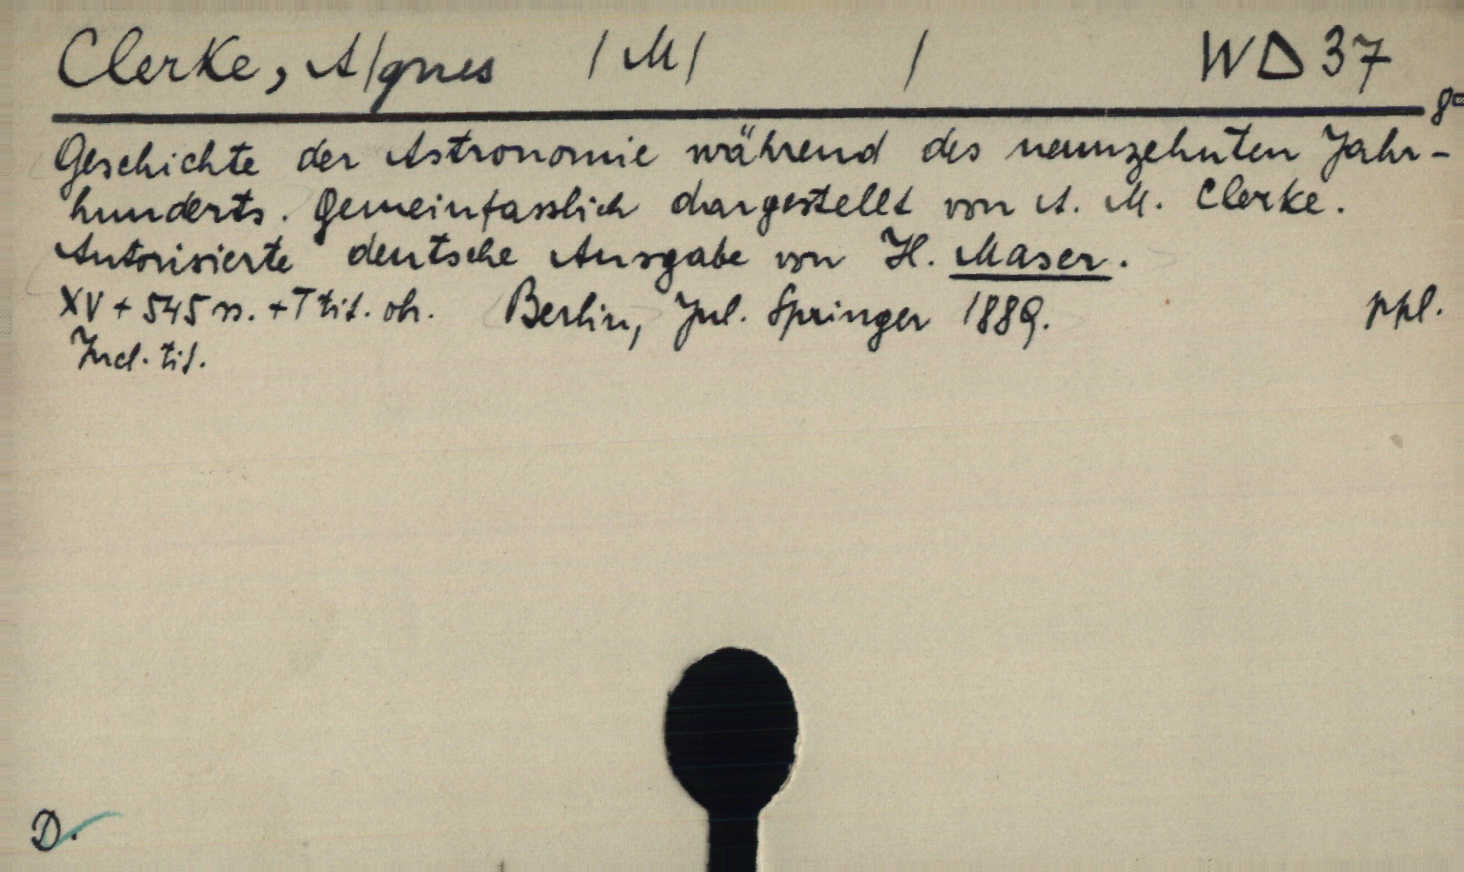 Clerke, A/gnes /M/ / WΔ37
8°
Geschichte der Astronomie während des neunzehnten Jahr-
hunderts. Gemeinfasslich dargestellt von A. M. Clerke.
Autorisierte deutsche Ausgabe von H. Maser.
XV + 545 ss. + T tit. ob. Berlin, Jul. Springer 1889. ppl.
Incl. tit.
D.